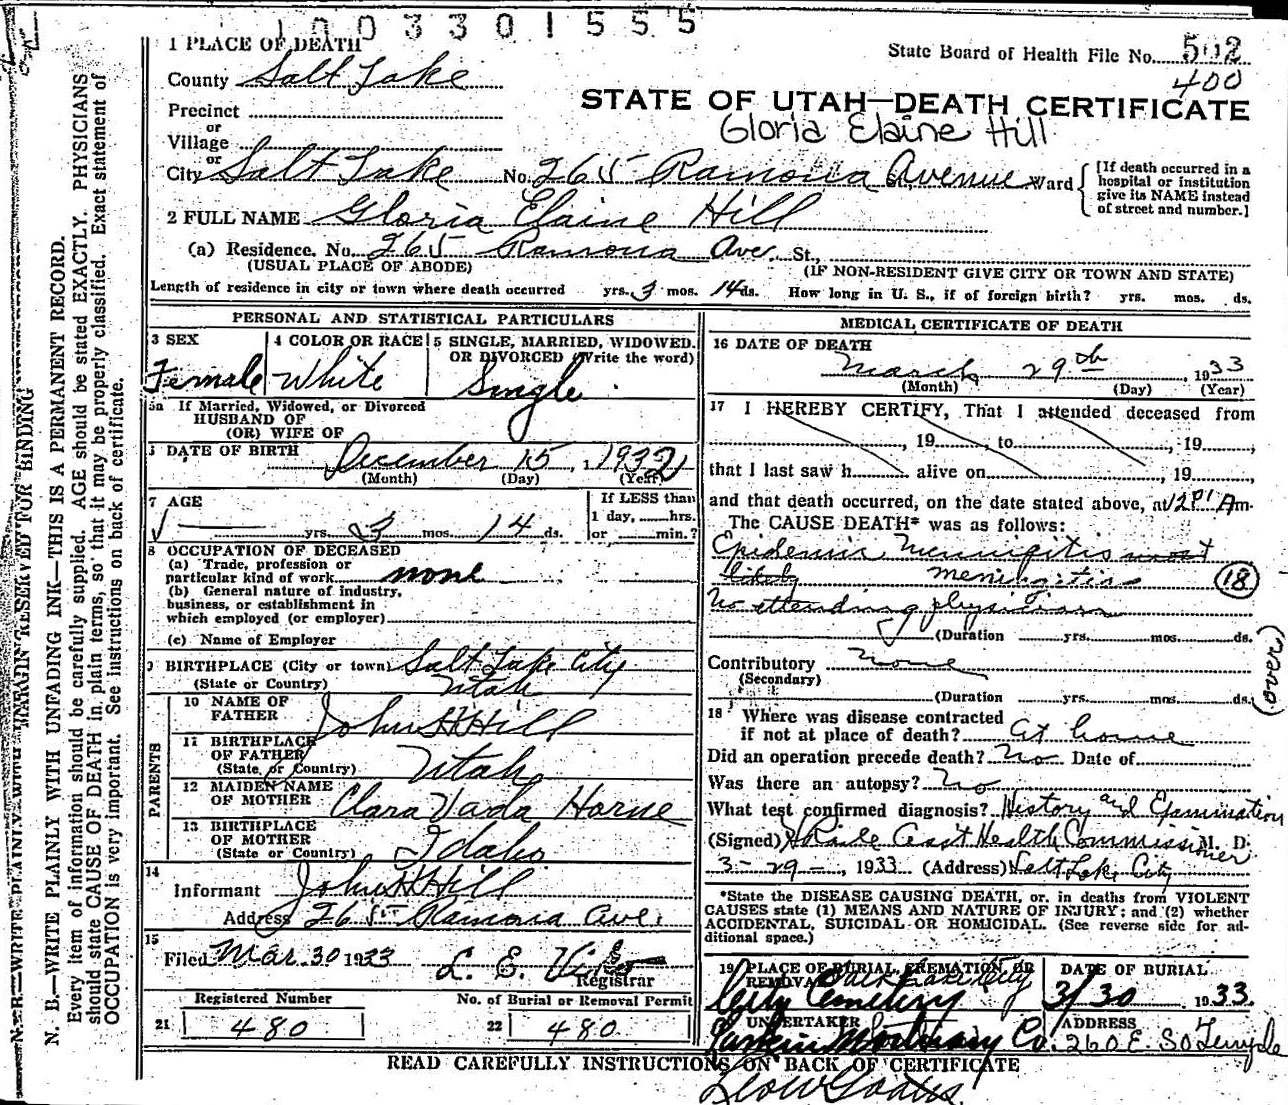 1003301555
1 PLACE OF DEATH
State Board of Health File No. 502
400
County Salt Lake
STATE OF UTAH—DEATH CERTIFICATE
Precinct
Gloria Elaine Hill
or
Village
or
City Salt Lake No. 265 Ramona Avenue St., Ward
[If death occurred in a hospital or institution give its NAME instead of street and number.]
2 FULL NAME Gloria Elaine Hill
(a) Residence. No. 265 Ramona Ave. St.,
(USUAL PLACE OF ABODE) (IF NON-RESIDENT GIVE CITY OR TOWN AND STATE)
Length of residence in city or town where death occurred yrs. 3 mos. 14 ds. How long in U. S., if of foreign birth? yrs. mos. ds.
PERSONAL AND STATISTICAL PARTICULARS
3 SEX
Female
4 COLOR OR RACE
White
5 SINGLE, MARRIED, WIDOWED.
OR DIVORCED (Write the word)
Single
5a If Married, Widowed, or Divorced
HUSBAND OF
(OR) WIFE OF
6 DATE OF BIRTH December 15, 1932
(Month) (Day) (Year)
7 AGE
yrs. 3 mos. 14 ds.
If LESS than
1 day, hrs.
or min.?
8 OCCUPATION OF DECEASED
(a) Trade, profession or
particular kind of work none
(b) General nature of industry,
business, or establishment in
which employed (or employer)
(c) Name of Employer
9 BIRTHPLACE (City or town) Salt Lake City
(State or Country) Utah
PARENTS
10 NAME OF
FATHER John H Hill
11 BIRTHPLACE
OF FATHER
(State or Country) Utah
12 MAIDEN NAME
OF MOTHER Clara Vada Horne
13 BIRTHPLACE
OF MOTHER
(State or Country) Idaho
14
Informant John H Hill
Address 265 Ramona Ave.
15
Filed Mar. 30 1933 L. E.
Registrar
Registered Number
21 480
No. of Burial or Removal Permit
22 480
MEDICAL CERTIFICATE OF DEATH
16 DATE OF DEATH
March 29th, 1933
(Month) (Day) (Year)
17 I HEREBY CERTIFY, That I attended deceased from
, 19 , to , 19 ,
that I last saw h alive on , 19
and that death occurred, on the date stated above, at 1201 A m.
The CAUSE DEATH* was as follows:
Epidemic Meningitis most
likely meningitis (18)
No attending physician
(Duration yrs. mos. ds.
Contributory none
(Secondary)
(Duration yrs. mos. ds.
(over)
18 Where was disease contracted
if not at place of death? at home
Did an operation precede death? No Date of
Was there an autopsy? No
What test confirmed diagnosis? History and Examination
(Signed) Health Commissioner M. D.
3-29-, 1933 (Address) Salt Lake City
*State the DISEASE CAUSING DEATH, or, in deaths from VIOLENT
CAUSES state (1) MEANS AND NATURE OF INJURY; and (2) whether
ACCIDENTAL, SUICIDAL OR HOMICIDAL. (See reverse side for ad-
ditional space.)
19 PLACE OF BURIAL, CREMATION, OR
REMOVAL Salt Lake City
City Cemetery
DATE OF BURIAL
3/30 1933.
UNDERTAKER
Larkin Mortuary Co.
ADDRESS
260 E. So Temple
READ CAREFULLY INSTRUCTIONS ON BACK OF CERTIFICATE
MARGIN RESERVED FOR BINDING
N. B.—WRITE PLAINLY WITH UNFADING INK—THIS IS A PERMANENT RECORD.
Every item of information should be carefully supplied. AGE should be stated EXACTLY. PHYSICIANS
should state CAUSE OF DEATH in plain terms, so that it may be properly classified. Exact statement of
OCCUPATION is very important. See instructions on back of certificate.